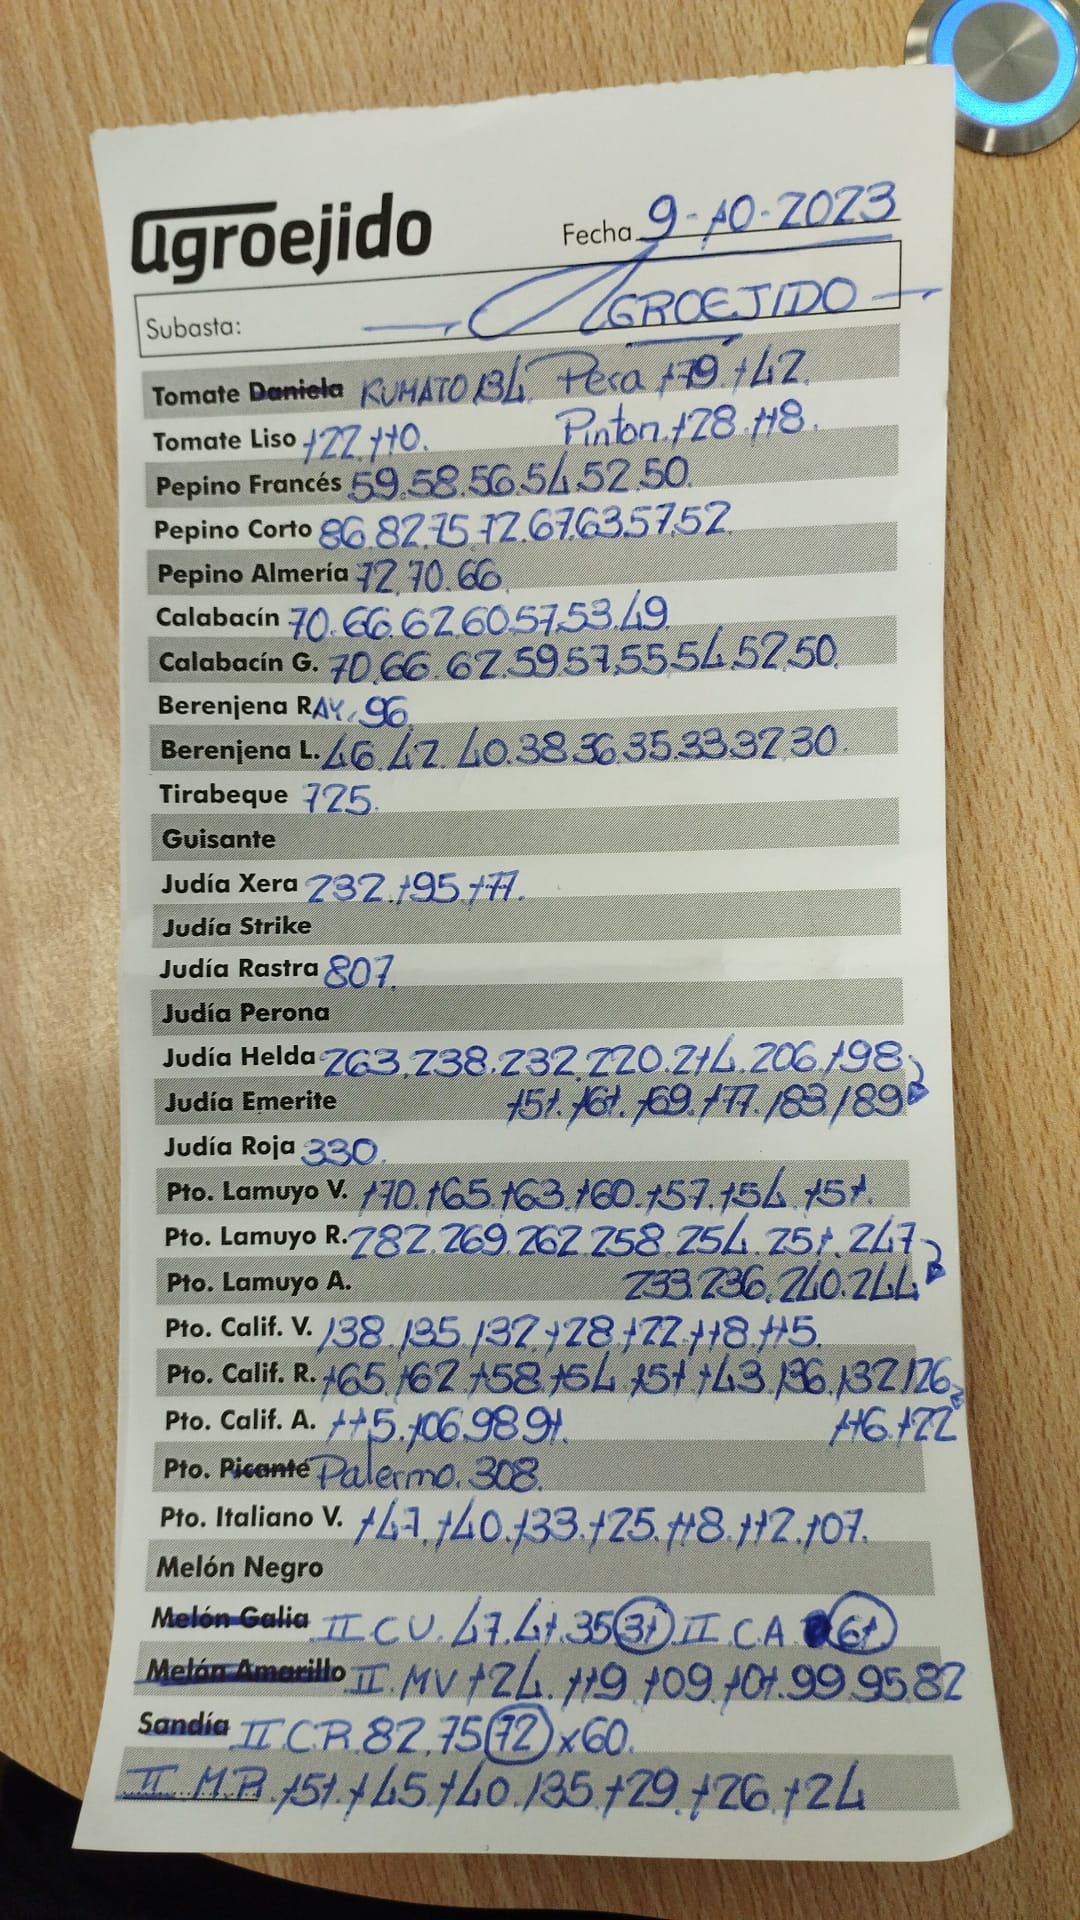 agroejido
Fecha 9-10-2023
Subasta: AGROEJIDO
Tomate Daniela KUMATO 134. Pera 179.142.
Tomate Liso 122.110. Pinton.128.118.
Pepino Francés 59.58.56.54.52.50.
Pepino Corto 86.82.75.72.67.63.57.52.
Pepino Almería 72.70.66.
Calabacín 70.66.62.60.57.53.49
Calabacín G. 70.66.62.59.57.55.54.52.50.
Berenjena RAY. 96.
Berenjena L. 46.42.40.38.36.35.33.32.30.
Tirabeque 725.
Guisante
Judía Xera 232.195.177.
Judía Strike
Judía Rastra 807.
Judía Perona
Judía Helda 263.238.232.220.214.206.198
Judía Emerite 151.161.169.177.183.189
Judía Roja 330.
Pto. Lamuyo V. 170.165.163.160.157.154.151.
Pto. Lamuyo R. 282.269.262.258.254.251.247
Pto. Lamuyo A. 233.236.240.244
Pto. Calif. V. 138.135.132.128.122.118.115.
Pto. Calif. R. 165.162.158.154.151.143.136.132.126
Pto. Calif. A. 115.106.98.91. 116.122
Pto. Picante Palermo. 308.
Pto. Italiano V. 147.140.133.125.118.112.107.
Melón Negro
Melón Galia II C U. 47.41.35 31 II C.A 61
Melón Amarillo II. MV 124. 119.109.101.99.95.82
Sandía II C.R. 82.75 72 x60.
II M.R. 151.145.140.135.129.126.124